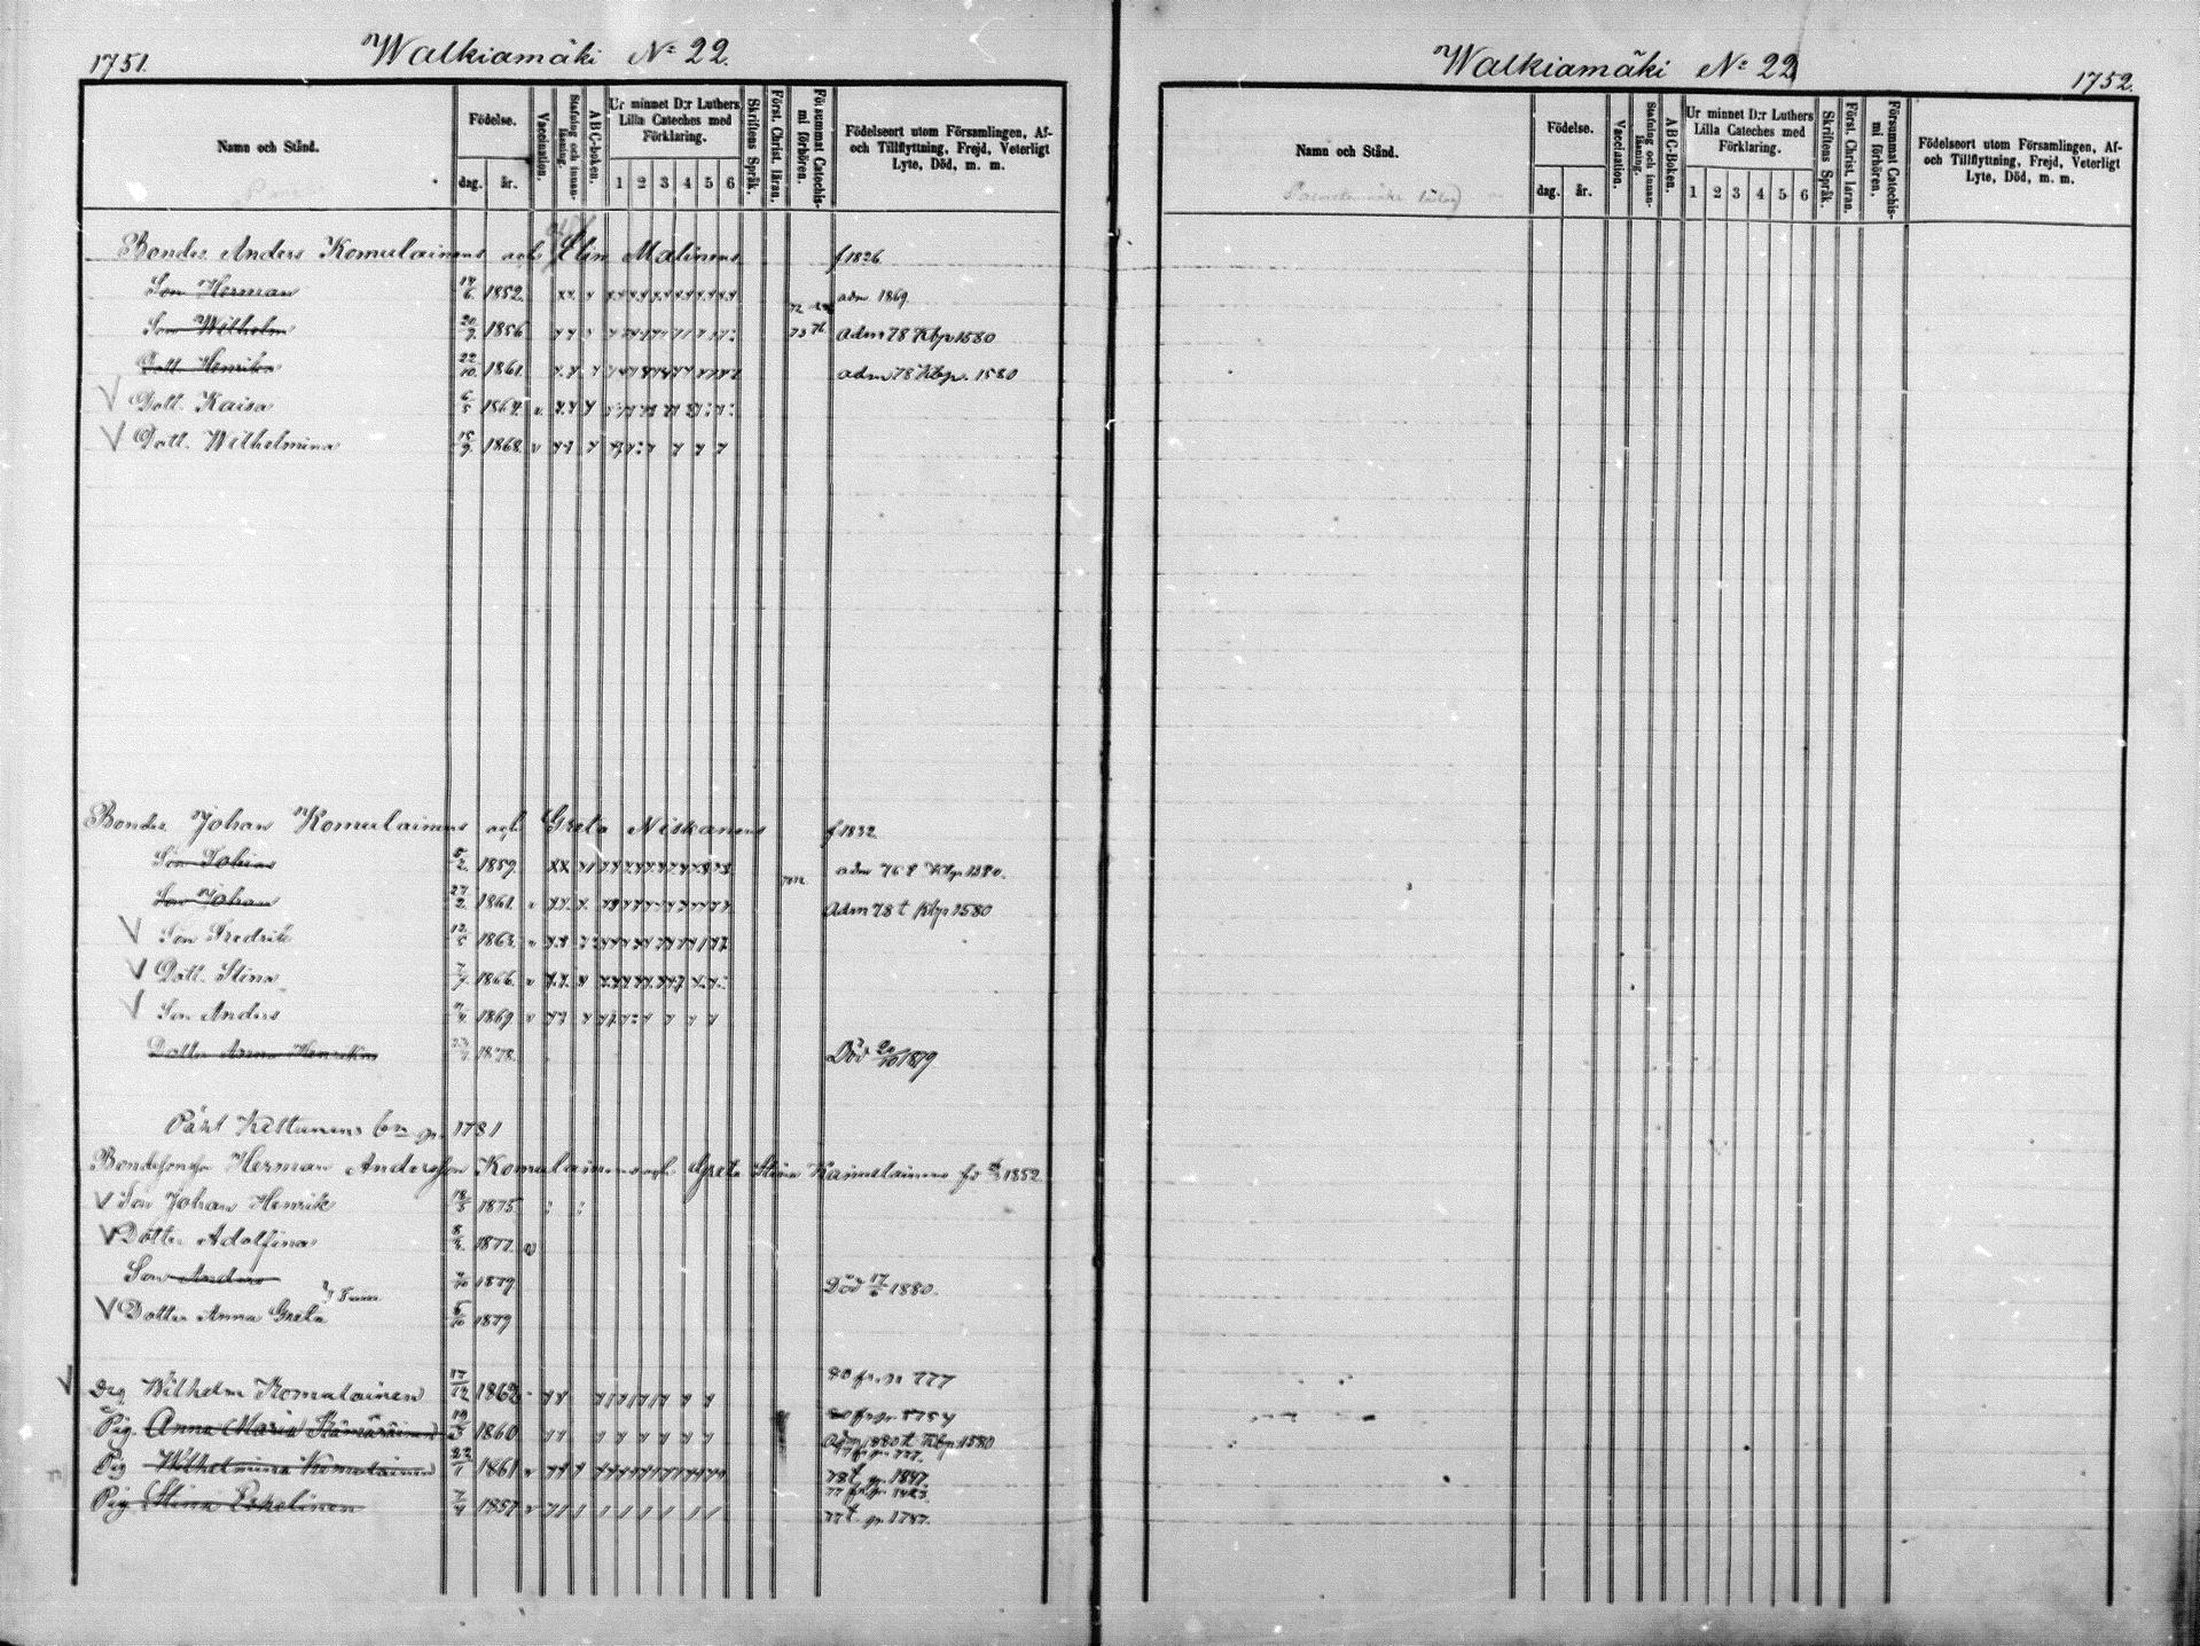 1751.
Walkiamäki No 22.
Namn och Stånd.
Födelse.
dag. år.
Vaccination.
Stafning och innan-läsning.
ABC-boken.
Ur minnet D:r Luthers Lilla Cateches med Förklaring.
1 2 3 4 5 6
Skriftens Språk.
Först. Christ. läran.
Försummat Catechis-mi förhören.
Födelseort utom Församlingen, Af- och Tillflyttning, Frejd, Veterligt Lyte, Död, m. m.
Bonden Anders Komulainens och Elin Malinens f 1826
Son Herman 14/6 1852. adm 1869
Son Wilhelm 20/9 1856 73 76 adm 78 Kbp 1580
Dott. Henrika 22/10 1861. adm 78 Kbp. 1580
V Dott. Kaisa 6/5 1864.
V Dott. Wilhelmina 15/9 1868.
Bonden Johan Komulainens och Greta Niskanens f 1832
Son Tobias 5/2 1859. adm 76 Kbp 1580.
Son Johan 27/2 1861. Adm 78 t Kbp 1580
V Son Fredrik 12/5 1863.
V Dott. Stina 1866.
V Son Anders 1869
Dotter Anna Henrika 1878. Död 20/10 1879
Påhl Kettunens 1781
Bondesonen Herman Andersson Komulainens och Greta Stina Kainulainens 1852
V Son Johan Henrik 18/5 1875
V Dotter Adolfina 1877.
Son Anders 1879 Död 17/6 1880.
V Dotter Anna Greta 5/10 1879
V Drg Wilhelm Komulainen 17/12 1862 80 fr. 777
Pig. Anna Maria Kämäräinen 1860 80 fr 1754
Adm 1880 t Kbp 1580
Pig Wilhelmina Komulainen 22/1 1861 777.
78 t. 1847.
Pig Stina Eskelinen 7/4 1857
77 t 1747.
Walkiamäki No 22
1752.
Namn och Stånd.
Födelse.
dag. år.
Vaccination.
Stafning och innan-läsning.
ABC-Boken.
Ur minnet D:r Luthers Lilla Cateches med Förklaring.
1 2 3 4 5 6
Skriftens Språk.
Först. Christ. läran.
Försummat Catechis-mi förhören.
Födelseort utom Församlingen, Af- och Tillflyttning, Frejd, Veterligt Lyte, Död, m. m.